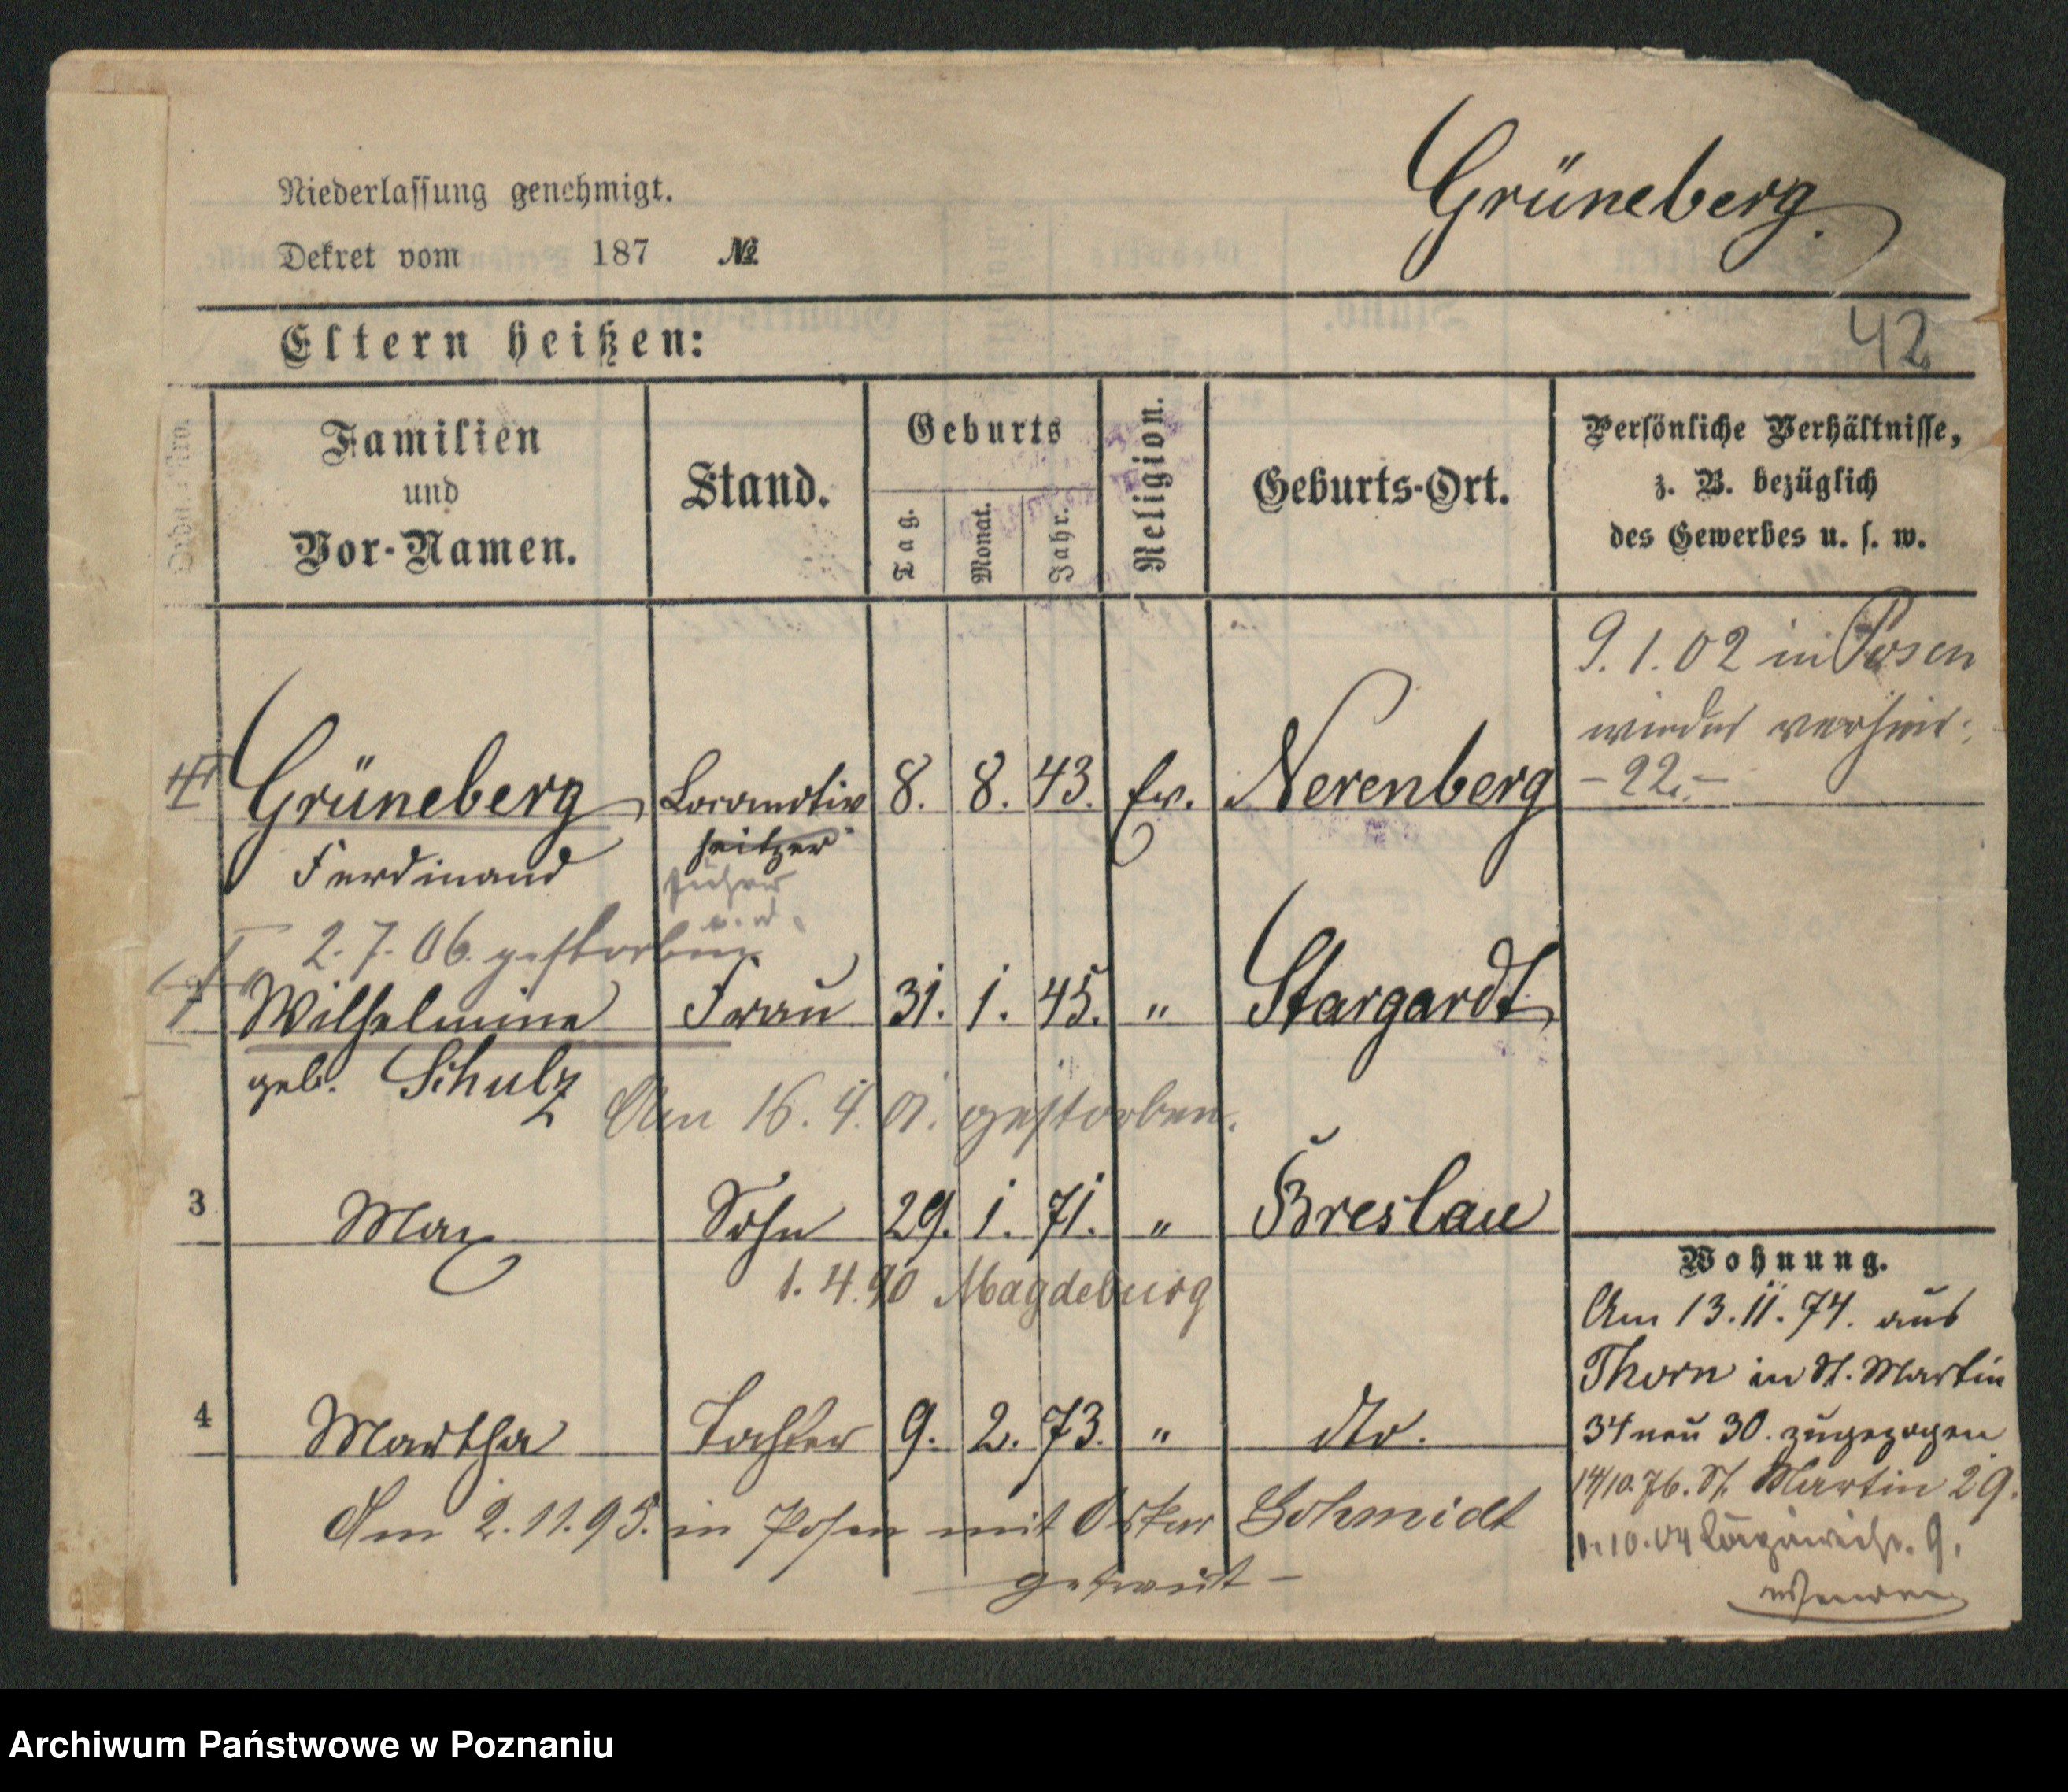 Grüneberg.
Niederlassung genehmigt.
Dekret vom 187 №
42
Eltern heißen:
Ordn. Nro.
Familien und Vor-Namen.
Stand.
Geburts
Tag.
Monat.
Jahr.
Religion.
Geburts-Ort.
Persönliche Verhältnisse,
z. B. bezüglich
des Gewerbes u. s. w.
9.1.02 in Posen
wieder verheir.
- 22. -
Grüneberg Locomotiv 8. 8. 43. Ev. Nerenberg
Ferdinand heitzer
führer
2.7.06. gestorben
Wilhelmine Frau 31. 1. 45. " Stargardt
geb. Schulz
Am 16.4.01. gestorben.
3 Max Sohn 29. 1. 71. " Breslau
1.4.90 Magdeburg
4 Martha Tochter 9. 2. 73. " dto.
Am 2.11.95. in Posen mit Oskar Schmidt
getraut -
Wohnung.
Am 13.11.74. aus
Thorn in St. Martin
34 neu 30. zugezogen
14/10.76. St. Martin 29.
1.10.04 9.
Archiwum Państwowe w Poznaniu